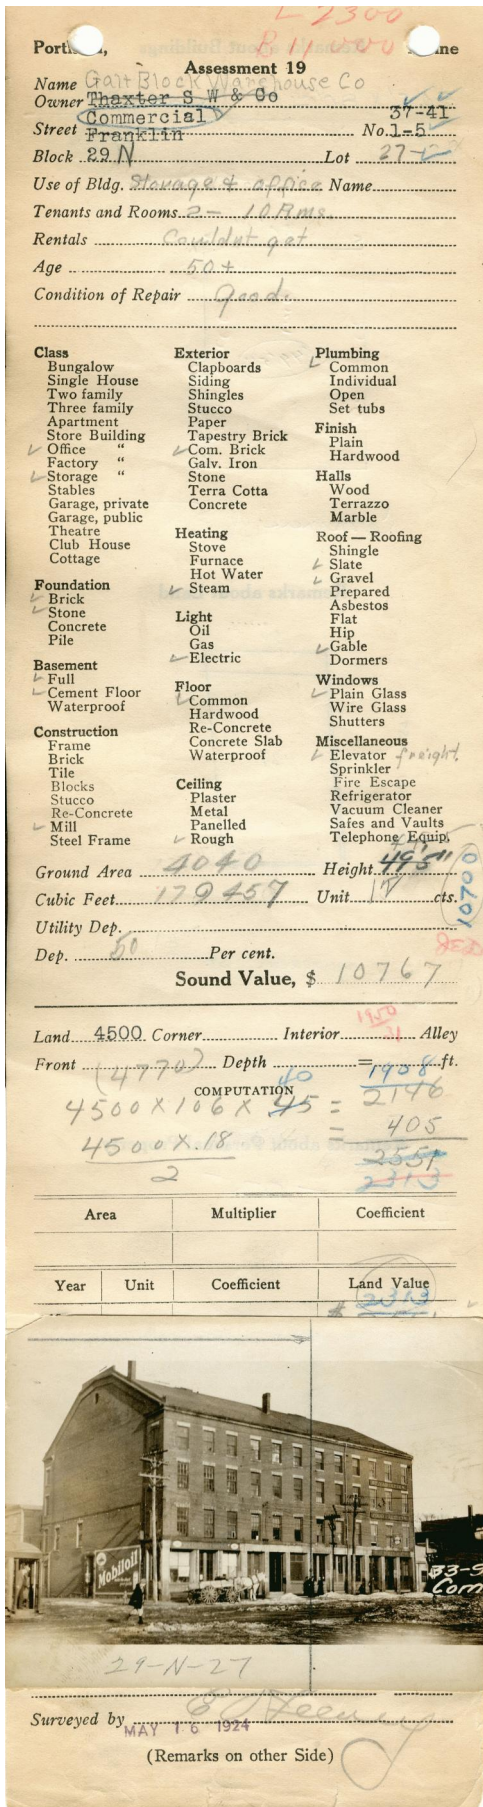 L 2300
Portland, B 11,000 Maine
Assessment 19
Name Galt Block Warehouse Co
Owner Thaxter S W & Co
Commercial 37-41
Street Franklin No. 1-5
Block 29 N Lot 27
Use of Bldg. Storage & office Name
Tenants and Rooms 2 - 10 Rms.
Rentals Couldnt get
Age 50+
Condition of Repair Good.
Class
Bungalow
Single House
Two family
Three family
Apartment
Store Building
✓ Office "
Factory "
✓ Storage "
Stables
Garage, private
Garage, public
Theatre
Club House
Cottage
Foundation
✓ Brick
✓ Stone
Concrete
Pile
Basement
✓ Full
✓ Cement Floor
Waterproof
Construction
Frame
Brick
Tile
Blocks
Stucco
Re-Concrete
✓ Mill
Steel Frame
Exterior
Clapboards
Siding
Shingles
Stucco
Paper
Tapestry Brick
✓ Com. Brick
Galv. Iron
Stone
Terra Cotta
Concrete
Heating
Stove
Furnace
Hot Water
✓ Steam
Light
Oil
Gas
✓ Electric
Floor
✓ Common
Hardwood
Re-Concrete
Concrete Slab
Waterproof
Ceiling
Plaster
Metal
Panelled
✓ Rough
Plumbing
✓ Common
Individual
Open
Set tubs
Finish
Plain
Hardwood
Halls
Wood
Terrazzo
Marble
Roof — Roofing
Shingle
✓ Slate
✓ Gravel
Prepared
Asbestos
Flat
Hip
✓ Gable
Dormers
Windows
✓ Plain Glass
Wire Glass
Shutters
Miscellaneous
✓ Elevator freight.
Sprinkler
Fire Escape
Refrigerator
Vacuum Cleaner
Safes and Vaults
Telephone Equip.
Ground Area 4040 Height
Cubic Feet 179457 Unit 12 cts.
10700
Utility Dep.
Dep. 50 Per cent.
Sound Value, $ 10767
Land 4500 Corner Interior Alley
Front (4770) Depth = 1908 ft.
COMPUTATION
40
4500 X 106 X 45 = 2146
4500 X 18 = 405
2 2551
2313
Area Multiplier Coefficient
Year Unit Coefficient Land Value
$ 2313
Mobiloil
33-9
Com
29-N-27
Surveyed by
MAY 16 1924
(Remarks on other Side)